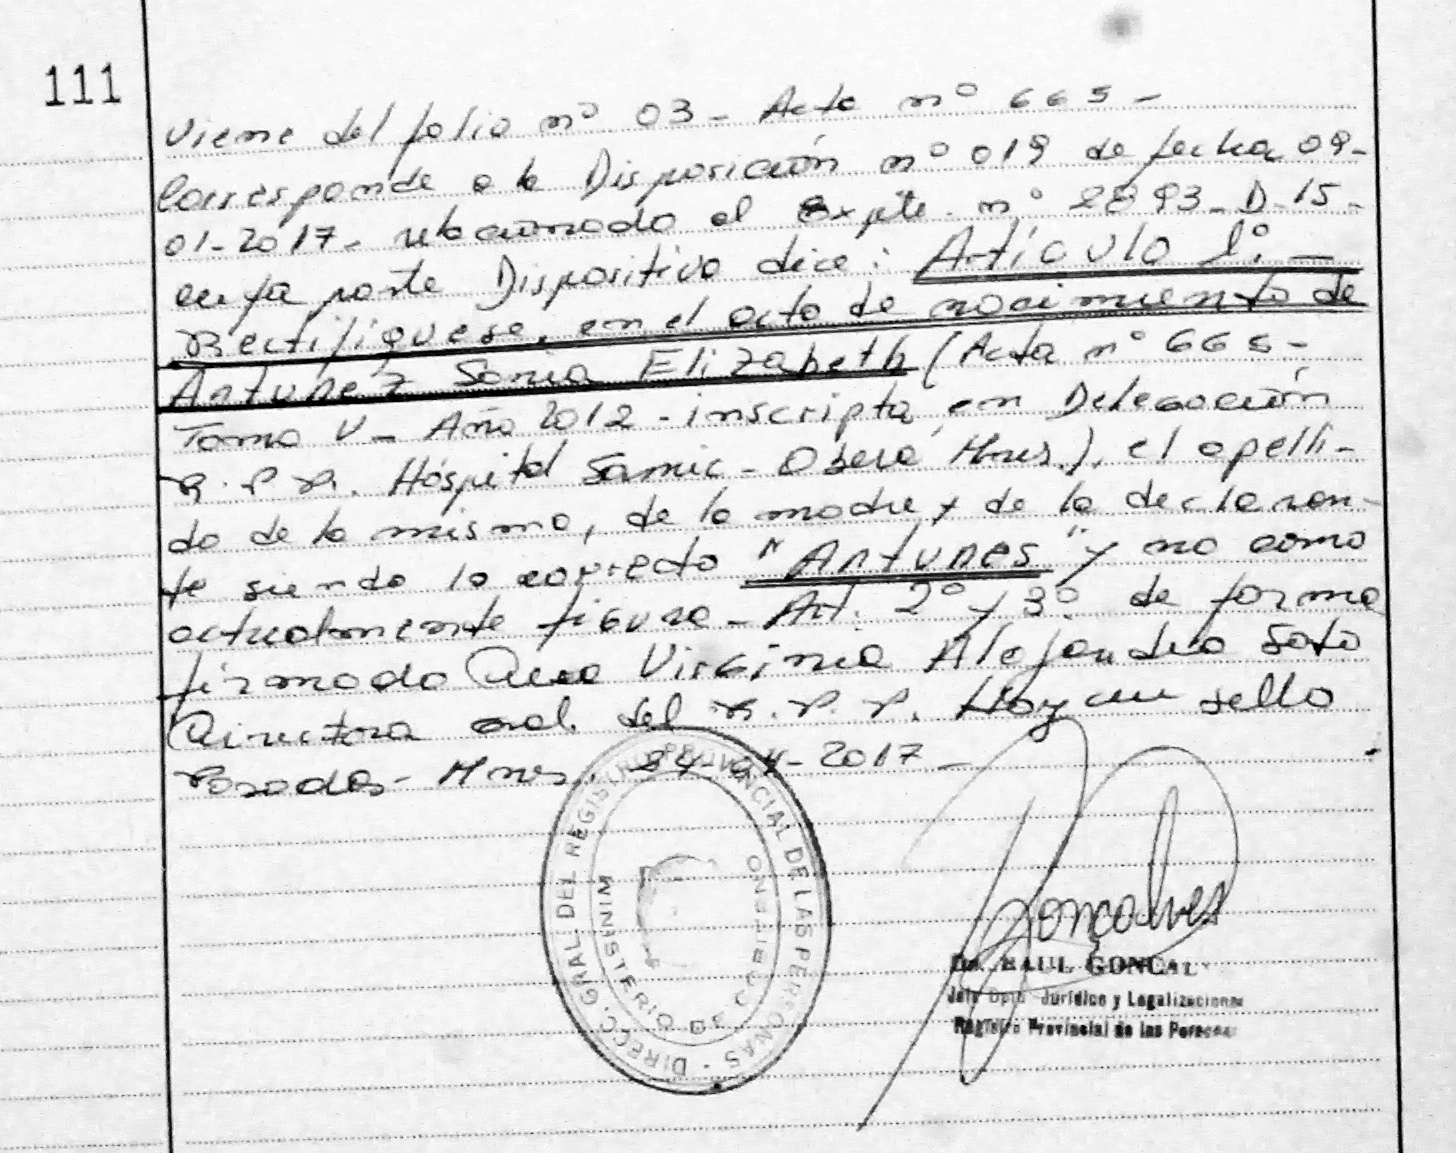 111
Viene del folio nº 03 - Acta nº 665 -
Corresponde a la Disposición nº 019 de fecha 09-
01-2017 - relacionado al Expte. nº 2893-D-15-
cuya parte Dispositiva dice: Artículo 1º. -
Rectifíquese, en el acta de nacimiento de
Antunez Sonia Elizabeth (Acta nº 665 -
Tomo V - Año 2012 - inscripta en Delegación
R.P.P. Hospital Samic - Oberá, Mnes.), el apelli-
do de la misma, de la madre y de la declaran-
te siendo lo correcto "Antunes" y no como
actualmente figura - Art. 2º y 3º de forma
firmado Virginia Alejandra Soto
Directora Gral. del R.P.P. Hay un sello
Posadas - Mnes. 24-04-2017 -
DIREC. GRAL. DEL REGISTRO PROVINCIAL DE LAS PERSONAS -
MINISTERIO DE GOBIERNO
Goncalves
Dr. RAUL GONCAL
Jefe Dpto Jurídico y Legalizaciones
Registro Provincial de las Personas